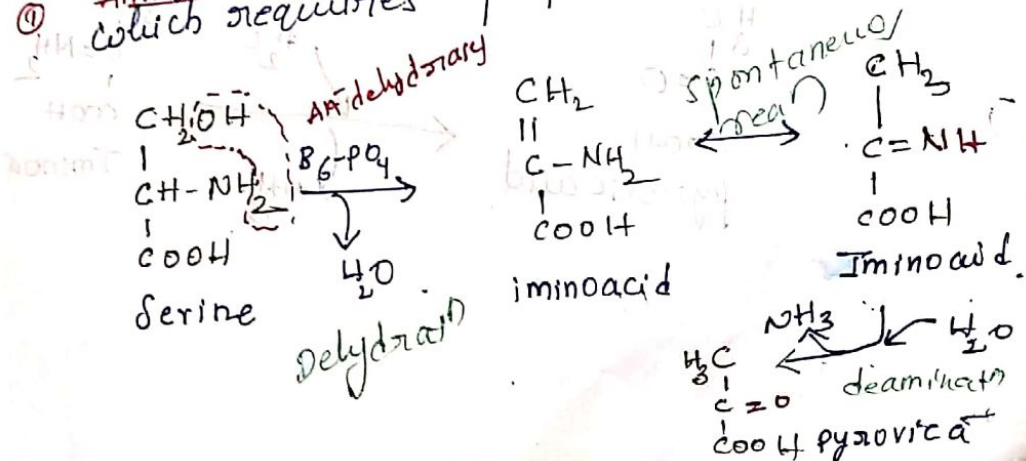 ①
which requires
CH₂OH
|
CH-NH₂
|
COOH
Serine
AA-dehydrary
B₆-PO₄
H₂O
Dehydraⁿ
CH₂
||
C-NH₂
|
COOH
iminoacid
Spontaneuo/
reaⁿ
CH₃
|
C=NH
|
COOH
Iminoacid.
NH₃
H₂O
deaminatⁿ
H₃C
|
C=O
|
COOH pyrovic a